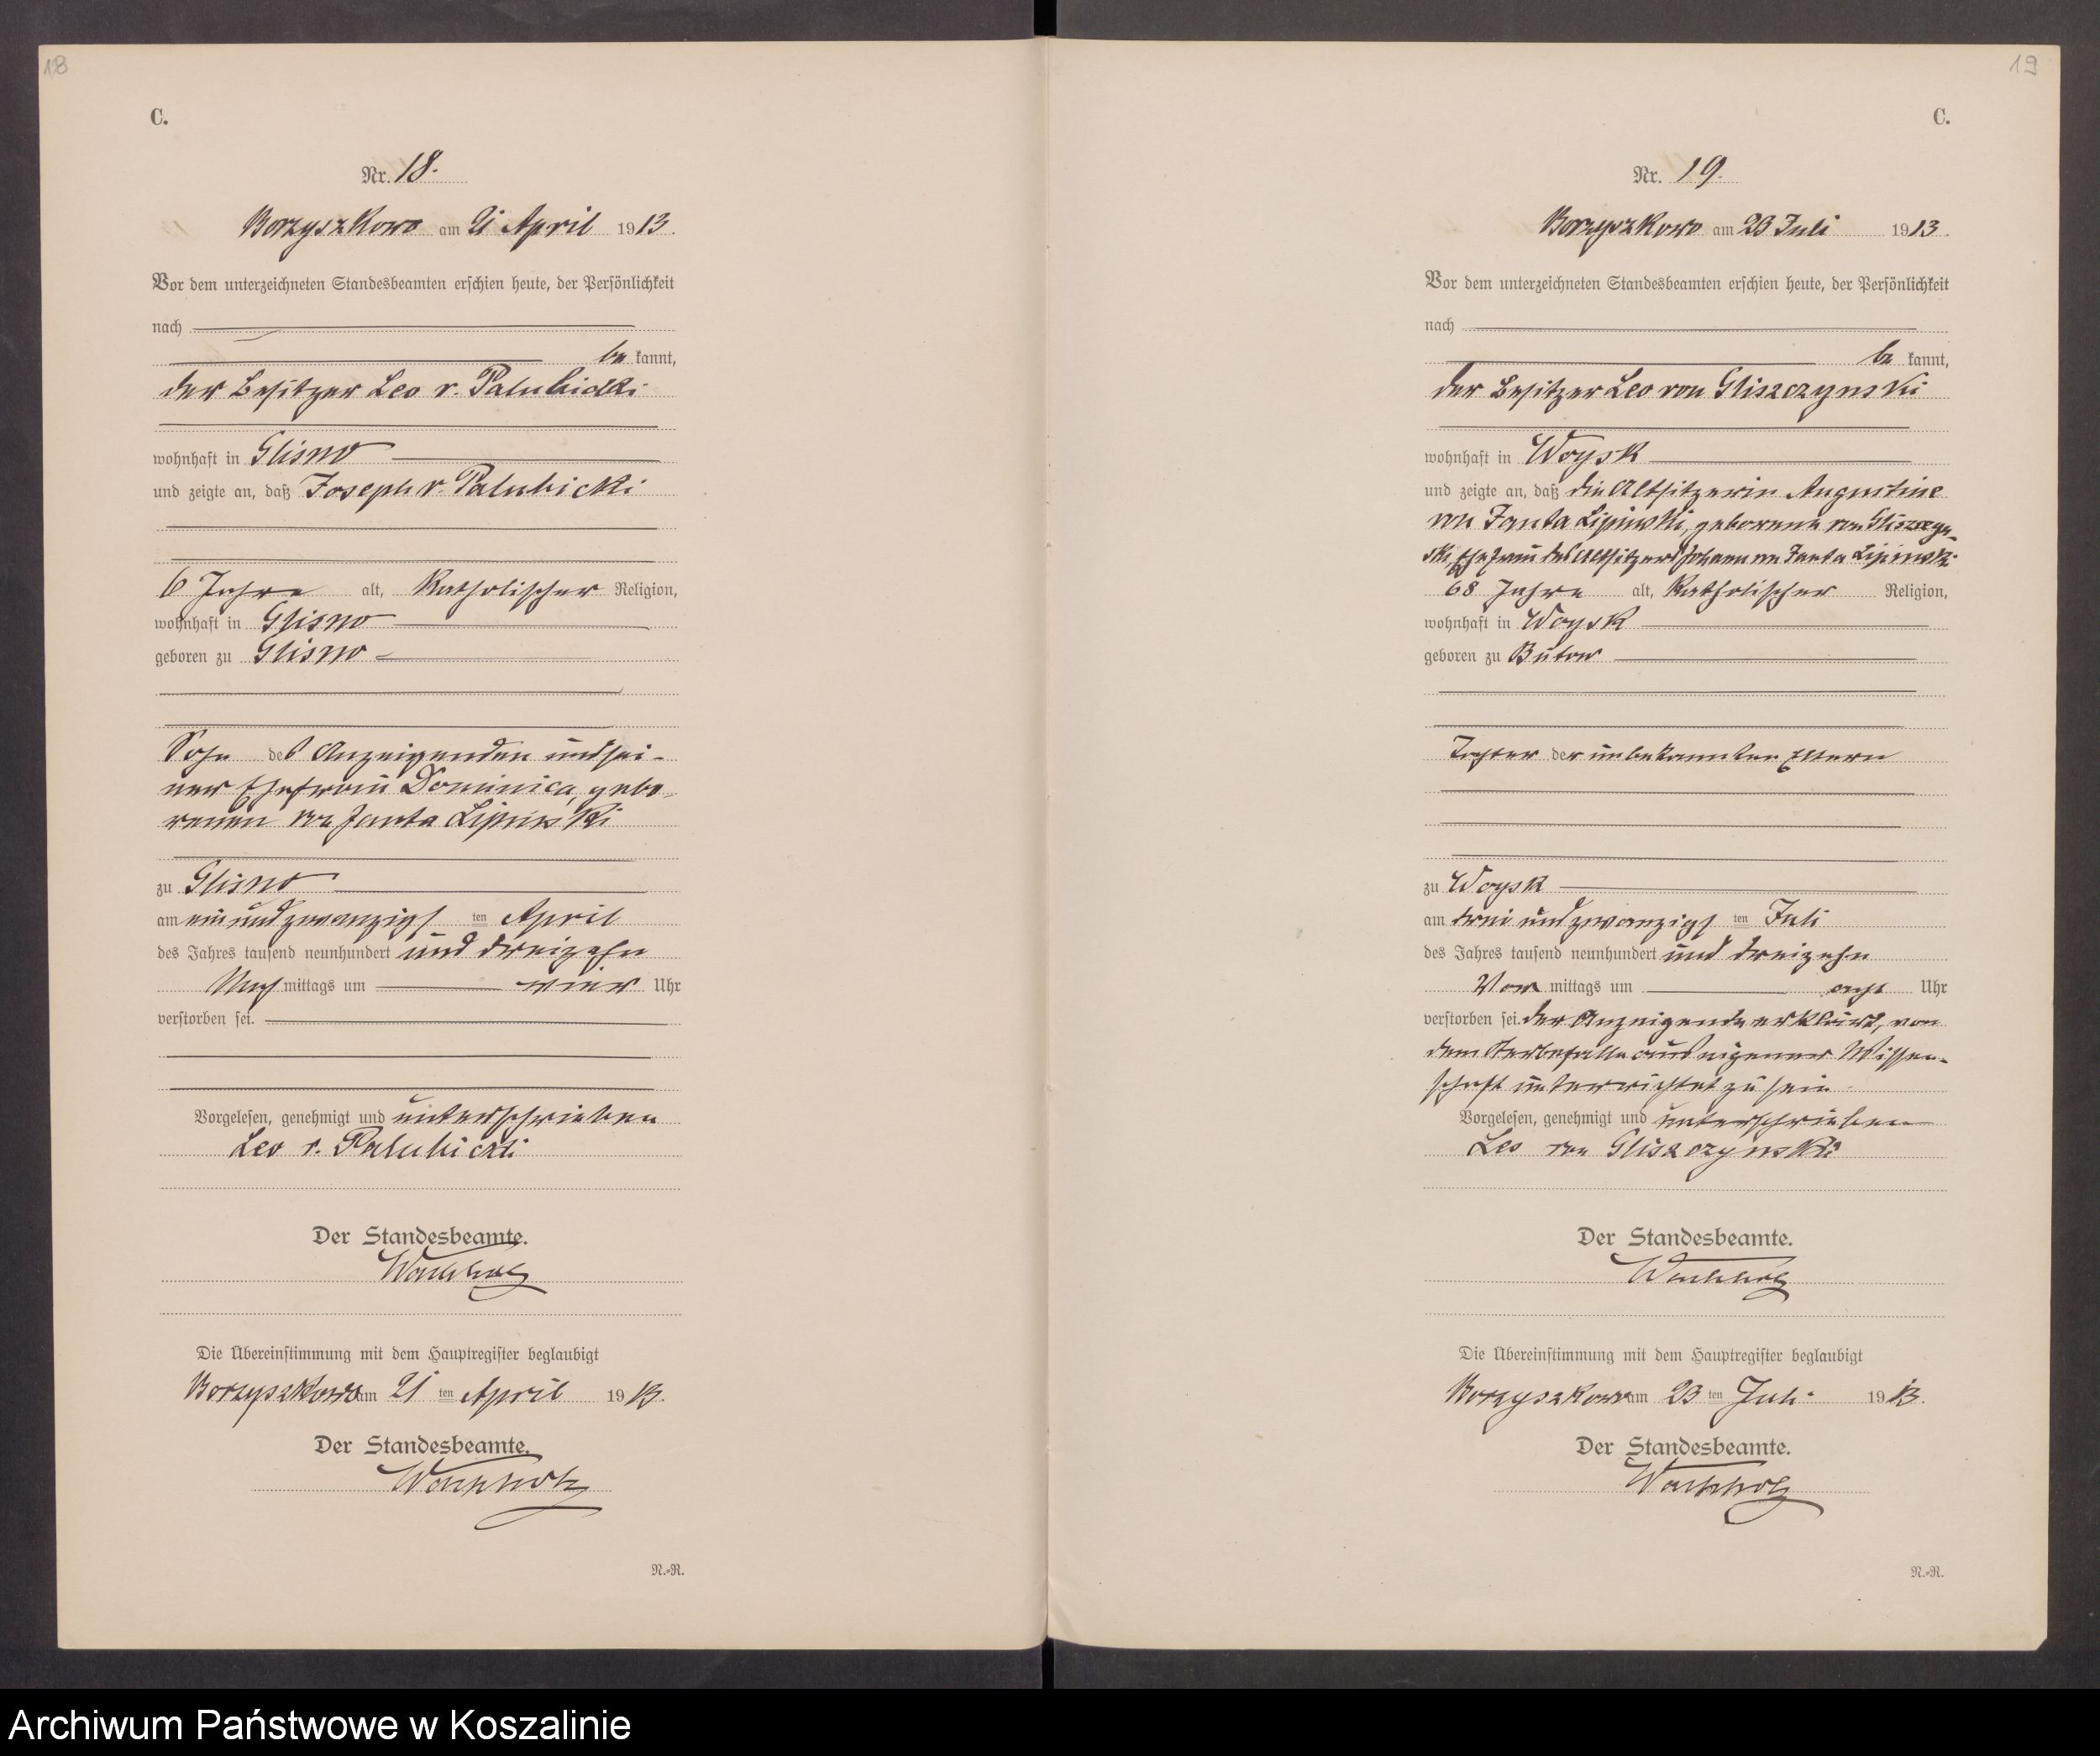 18
C.
Nr. 18.
Borzyszkowo am 21 April 1913.
Vor dem unterzeichneten Standesbeamten erschien heute, der Persönlichkeit
nach
be kannt,
der Besitzer Leo v. Palubicki
wohnhaft in Glisno
und zeigte an, daß Joseph v. Palubicki
6 Jahre alt, katholischer Religion,
wohnhaft in Glisno
geboren zu Glisno
Sohn des Anzeigenden und sei-
ner Ehefrau Dominica, gebo-
renen von Janta Lipinski
zu Glisno
am ein und zwanzigsten April
des Jahres tausend neunhundert und dreizehn
Nachmittags um vier Uhr
verstorben sei.
Vorgelesen, genehmigt und unterschrieben
Leo v. Palubicki
Der Standesbeamte.
Wachholz
Die Übereinstimmung mit dem Hauptregister beglaubigt
Borzyszkowo am 21ten April 1913.
Der Standesbeamte.
Wachholz
N.-R.
19
C.
Nr. 19.
Borzyszkowo am 23 Juli 1913.
Vor dem unterzeichneten Standesbeamten erschien heute, der Persönlichkeit
nach
be kannt,
der Besitzer Leo von Gliszczynski
wohnhaft in Woysk
und zeigte an, daß die Altsitzerin Augustine
von Janta Lipinski, geborene von Gliszczyn-
ski, Ehefrau des Altsitzers Johann von Janta Lipinski
68 Jahre alt, katholischer Religion,
wohnhaft in Woysk
geboren zu Bütow
Tochter der unbekannten Eltern
zu Woysk
am drei und zwanzigsten Juli
des Jahres tausend neunhundert und dreizehn
Vormittags um acht Uhr
verstorben sei. Der Anzeigende erklärt, von
dem Sterbefalle aus eigener Wissen-
schaft unterrichtet zu sein.
Vorgelesen, genehmigt und unterschrieben
Leo von Gliszczynski
Der Standesbeamte.
Wachholz
Die Übereinstimmung mit dem Hauptregister beglaubigt
Borzyszkowo am 23ten Juli 1913.
Der Standesbeamte.
Wachholz
N.-R.
Archiwum Państwowe w Koszalinie